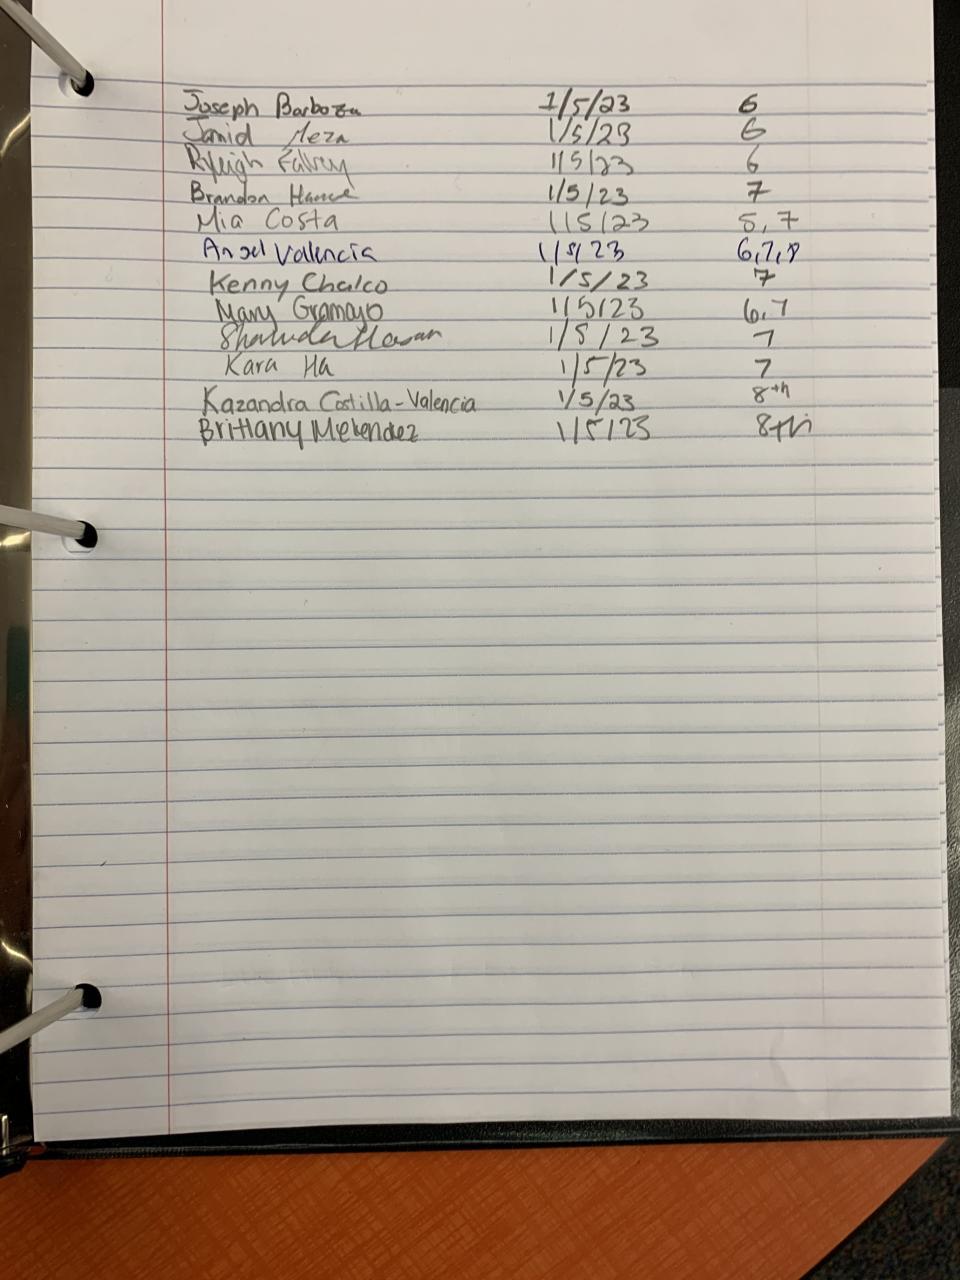 Joseph Barboza 1/5/23 6
Jamid Meza 1/5/23 6
Ryleigh Falvey 1/5/23 6
Brandon 1/5/23 7
Mia Costa 1/5/23 5,7
Angel Valencia 1/5/23 6,7,8
Kenny Chalco 1/5/23 7
Mary Gramayo 1/5/23 6,7
Hasan 1/5/23 7
Kara Ha 1/5/23 7
Kazandra Costilla-Valencia 1/5/23 8th
Brittany Melendez 1/5/23 8th